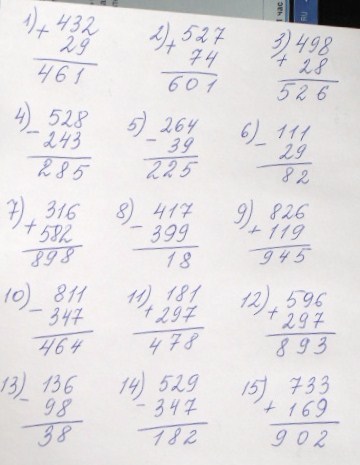 1) + 432 2) + 527 3) + 498
29 74 28
461 601 526
4) - 528 5) - 264 6) - 111
243 39 29
285 225 82
7) + 316 8) - 417 9) + 826
582 399 119
898 18 945
10) - 811 11) + 181 12) + 596
347 297 297
464 478 893
13) - 136 14) - 529 15) + 733
98 347 169
38 182 902